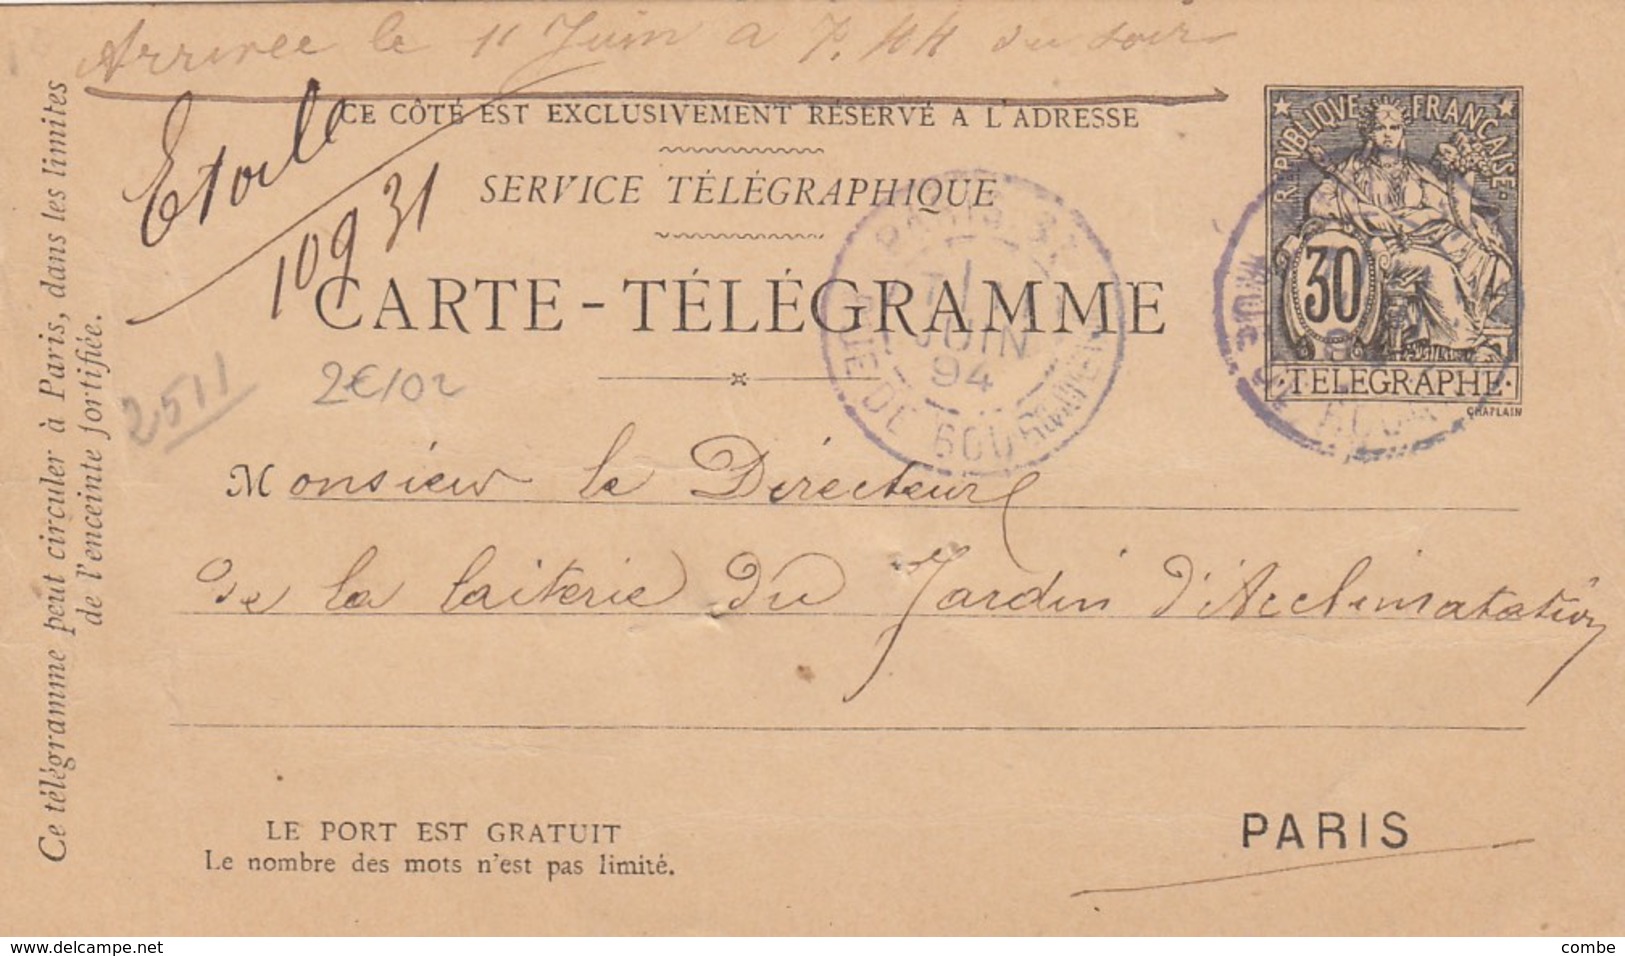 Arrivée le 11 Juin a 7.44 du soir
Etoile
10931
CE CÔTÉ EST EXCLUSIVEMENT RÉSERVÉ A L'ADRESSE
SERVICE TÉLÉGRAPHIQUE
CARTE-TÉLÉGRAMME
RÉPUBLIQUE FRANÇAISE
30
TELEGRAPHE
CHAPLAIN
PARIS
JUIN
94
RUE DE
2511
2€/02
Monsieur le Directeur
de la laiterie du Jardin d'Acclimatation
LE PORT EST GRATUIT
Le nombre des mots n'est pas limité.
PARIS
Ce télégramme peut circuler à Paris, dans les limites
de l'enceinte fortifiée.
www.delcampe.net
combe